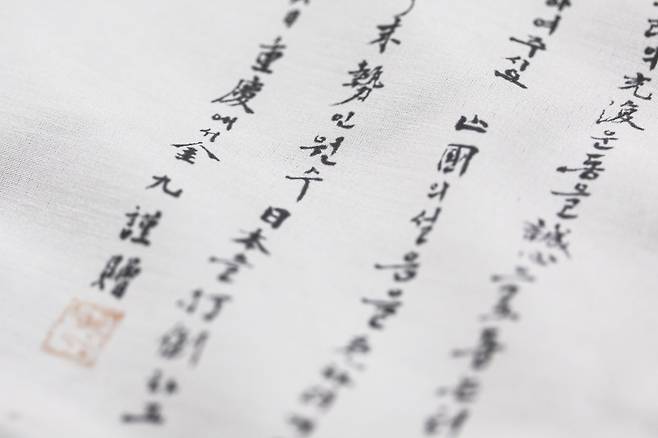 리의光復운동을 誠心으로돕는터
하여주시오 亡國의설음을
末勢인 원수 日本을 打倒하고
日 重慶에서 金九 謹贈